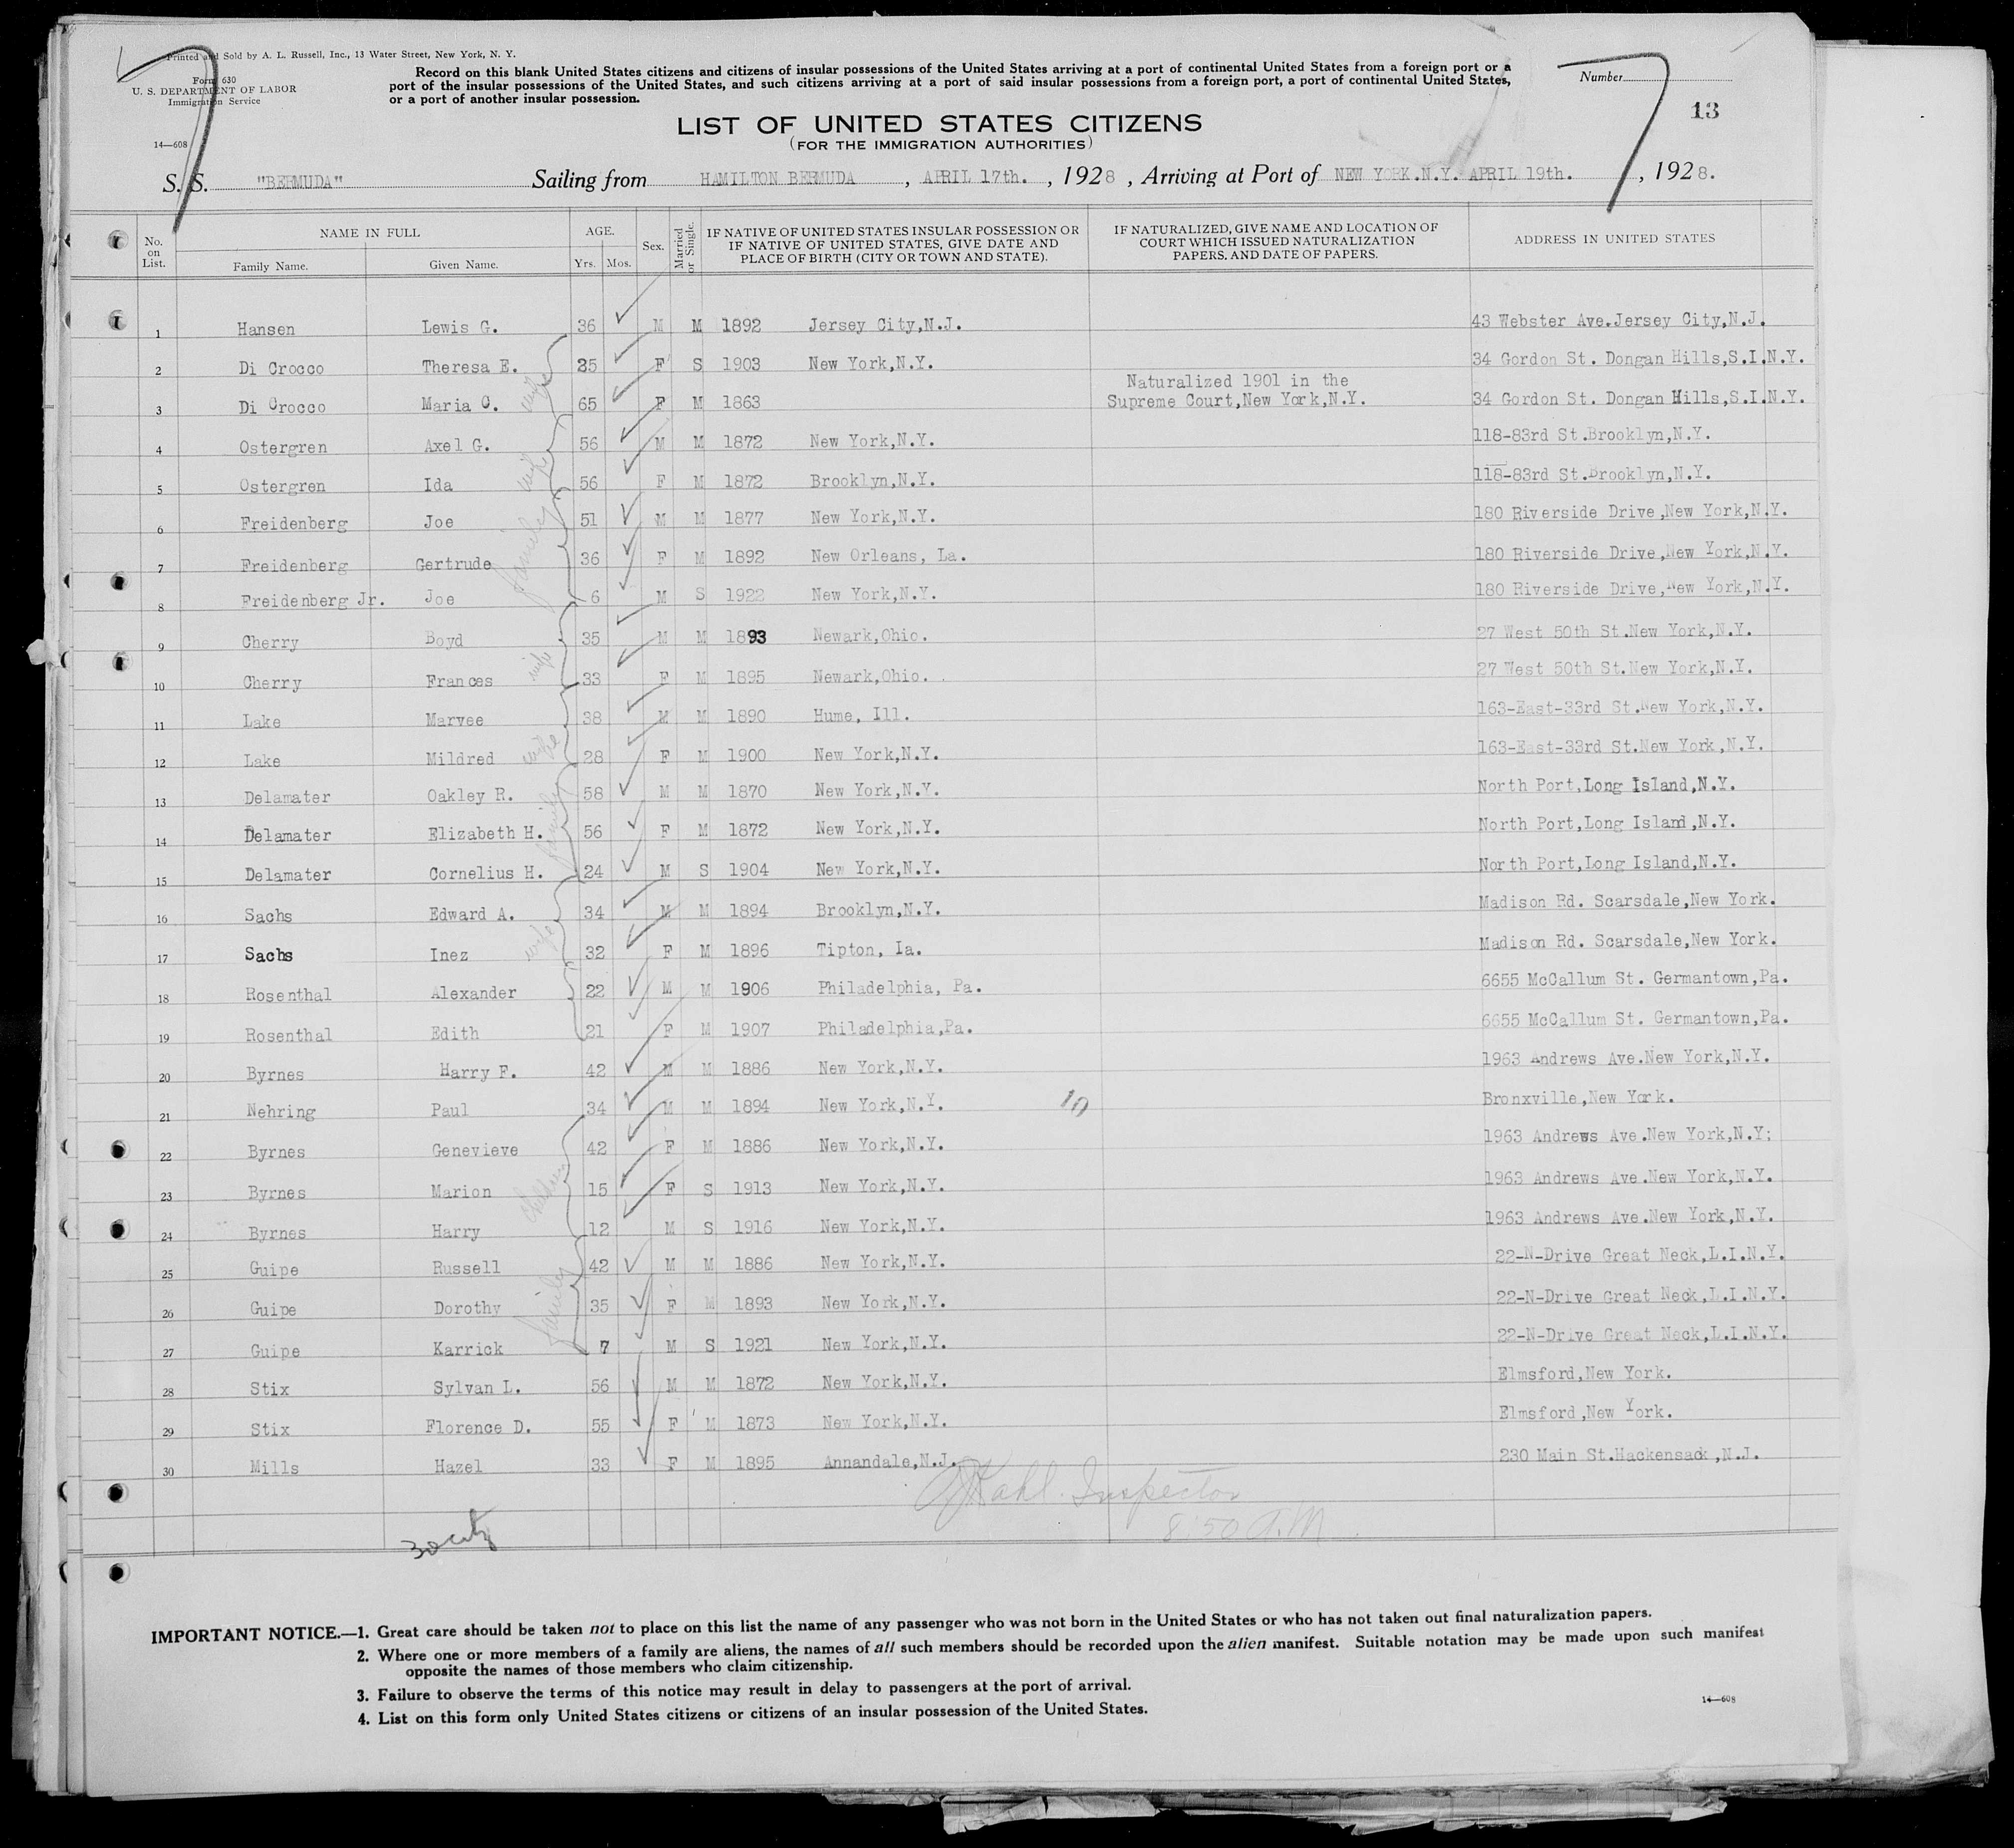 Printed and Sold by A. L. Russell, Inc., 13 Water Street, New York, N. Y.
Form 630
U. S. DEPARTMENT OF LABOR
Immigration Service
14—608
Record on this blank United States citizens and citizens of insular possessions of the United States arriving at a port of continental United States from a foreign port or a
port of the insular possessions of the United States, and such citizens arriving at a port of said insular possessions from a foreign port, a port of continental United States,
or a port of another insular possession.
Number
13
LIST OF UNITED STATES CITIZENS
(FOR THE IMMIGRATION AUTHORITIES)
7 7
S. S. "BERMUDA" Sailing from HAMILTON BERMUDA, APRIL 17th., 1928, Arriving at Port of NEW YORK.N.Y. APRIL 19th., 1928.
No. on List. NAME IN FULL Family Name. Given Name. AGE. Yrs. Mos. Sex. Married or Single. IF NATIVE OF UNITED STATES INSULAR POSSESSION OR IF NATIVE OF UNITED STATES, GIVE DATE AND PLACE OF BIRTH (CITY OR TOWN AND STATE). IF NATURALIZED, GIVE NAME AND LOCATION OF COURT WHICH ISSUED NATURALIZATION PAPERS, AND DATE OF PAPERS. ADDRESS IN UNITED STATES
1 Hansen Lewis G. 36 M M 1892 Jersey City,N.J. 43 Webster Ave.Jersey City,N.J.
2 Di Crocco Theresa E. 25 F S 1903 New York,N.Y. 34 Gordon St. Dongan Hills,S.I.N.Y.
3 Di Crocco Maria C. wife 65 F M 1863 Naturalized 1901 in the Supreme Court,New York,N.Y. 34 Gordon St. Dongan Hills,S.I.N.Y.
4 Ostergren Axel G. 56 M M 1872 New York,N.Y. 118-83rd St.Brooklyn,N.Y.
5 Ostergren Ida wife 56 F M 1872 Brooklyn,N.Y. 118-83rd St.Brooklyn,N.Y.
6 Freidenberg Joe 51 M M 1877 New York,N.Y. 180 Riverside Drive,New York,N.Y.
7 Freidenberg Gertrude family 36 F M 1892 New Orleans, La. 180 Riverside Drive,New York,N.Y.
8 Freidenberg Jr. Joe 6 M S 1922 New York,N.Y. 180 Riverside Drive,New York,N.Y.
9 Cherry Boyd 35 M M 1893 Newark,Ohio. 27 West 50th St.New York,N.Y.
10 Cherry Frances wife 33 F M 1895 Newark,Ohio. 27 West 50th St.New York,N.Y.
11 Lake Marvee 38 M M 1890 Hume, Ill. 163-East-33rd St.New York,N.Y.
12 Lake Mildred wife 28 F M 1900 New York,N.Y. 163-East-33rd St.New York,N.Y.
13 Delamater Oakley R. 58 M M 1870 New York,N.Y. North Port,Long Island,N.Y.
14 Delamater Elizabeth H. family 56 F M 1872 New York,N.Y. North Port,Long Island,N.Y.
15 Delamater Cornelius H. 24 M S 1904 New York,N.Y. North Port,Long Island,N.Y.
16 Sachs Edward A. 34 M M 1894 Brooklyn,N.Y. Madison Rd. Scarsdale,New York.
17 Sachs Inez wife 32 F M 1896 Tipton, Ia. Madison Rd. Scarsdale,New York.
18 Rosenthal Alexander 22 M M 1906 Philadelphia, Pa. 6655 McCallum St. Germantown,Pa.
19 Rosenthal Edith 21 F M 1907 Philadelphia,Pa. 6655 McCallum St. Germantown,Pa.
20 Byrnes Harry F. 42 M M 1886 New York,N.Y. 1963 Andrews Ave.New York,N.Y.
21 Nehring Paul 34 M M 1894 New York,N.Y. 10 Bronxville,New York.
22 Byrnes Genevieve 42 F M 1886 New York,N.Y. 1963 Andrews Ave.New York,N.Y:
23 Byrnes Marion 15 F S 1913 New York,N.Y. 1963 Andrews Ave.New York,N.Y.
24 Byrnes Harry 12 M S 1916 New York,N.Y. 1963 Andrews Ave.New York,N.Y.
25 Guipe Russell 42 M M 1886 New York,N.Y. 22-N-Drive Great Neck,L.I.N.Y.
26 Guipe Dorothy family 35 F M 1893 New York,N.Y. 22-N-Drive Great Neck,L.I.N.Y.
27 Guipe Karrick 7 M S 1921 New York,N.Y. 22-N-Drive Great Neck,L.I.N.Y.
28 Stix Sylvan L. 56 M M 1872 New York,N.Y. Elmsford,New York.
29 Stix Florence D. 55 F M 1873 New York,N.Y. Elmsford,New York.
30 Mills Hazel 33 F M 1895 Annandale,N.J. 230 Main St.Hackensack,N.J.
Kahl. Inspector
8:50 A.M.
30
IMPORTANT NOTICE.—1. Great care should be taken not to place on this list the name of any passenger who was not born in the United States or who has not taken out final naturalization papers.
2. Where one or more members of a family are aliens, the names of all such members should be recorded upon the alien manifest. Suitable notation may be made upon such manifest
opposite the names of those members who claim citizenship.
3. Failure to observe the terms of this notice may result in delay to passengers at the port of arrival.
4. List on this form only United States citizens or citizens of an insular possession of the United States.
14—608